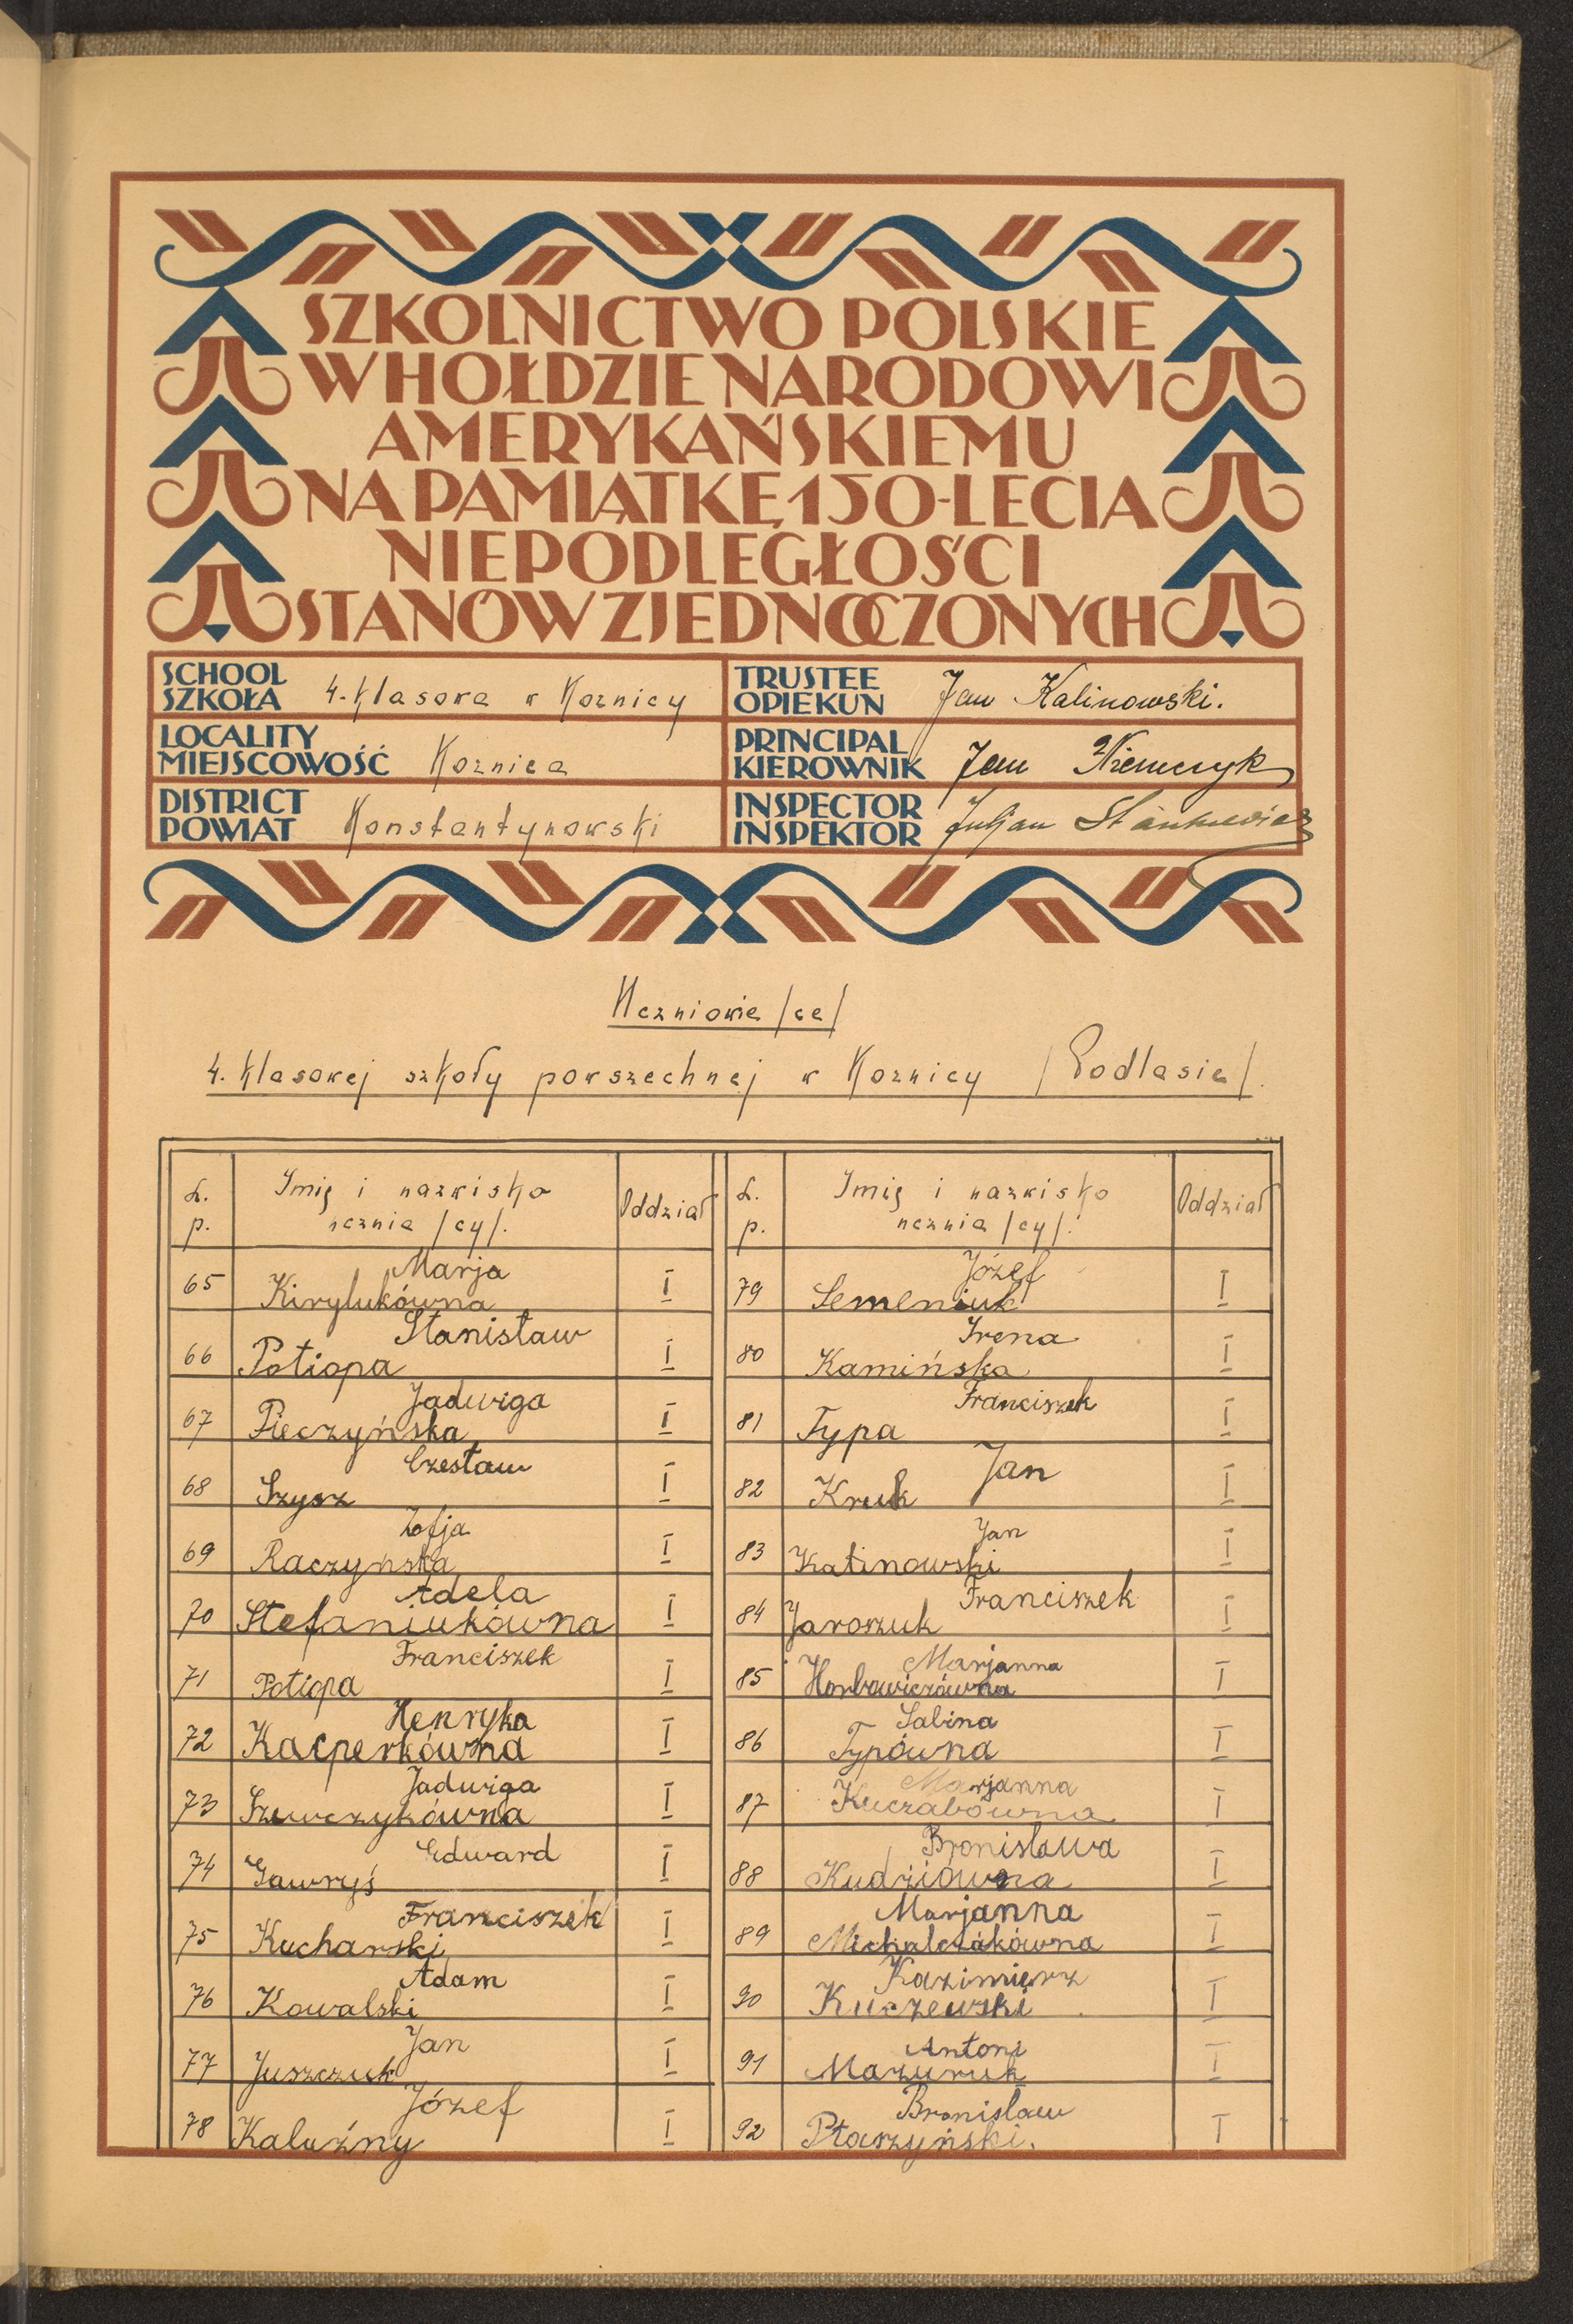 SZKOLNICTWO POLSKIE
W HOŁDZIE NARODOWI
AMERYKAŃSKIEMU
NA PAMIĄTKĘ 150-LECIA
NIEPODLEGŁOŚCI
STANÓW ZJEDNOCZONYCH
SCHOOL
SZKOŁA 4-klasowa w Koźnicy
TRUSTEE
OPIEKUN Jan Kalinowski.
LOCALITY
MIEJSCOWOŚĆ
PRINCIPAL
KIEROWNIK Jan Niemczyk
DISTRICT
POWIAT Konstantynowski
INSPECTOR
INSPEKTOR Juljan Stankiewicz
Uczniowie /ce/
4. klasowej szkoły powszechnej w /Podlasie/.
L. p. Imię i nazwisko ucznia /cy/. Oddział
65 Marja Kirylukówna I
66 Stanisław Potiopa I
67 Jadwiga Pieczyńska I
68 Czesław Szysz I
69 Zofja Raczyńska I
70 Adela Stefaniukówna I
71 Franciszek Potiopa I
72 Henryka Kacperkówna I
73 Jadwiga Szewczykówna I
74 Edward Gawryś I
75 Franciszek Kucharski I
76 Adam Kowalski I
77 Jan Juszczuk I
78 Józef Kaluźny I
L. p. Imię i nazwisko ucznia /cy/. Oddział
79 Józef Semeniuk I
80 Irena Kamińska I
81 Franciszek Typa I
82 Jan Kruk I
83 Jan Kalinowski I
84 Franciszek Jaroszuk I
85 Marjanna Horbowiczówna I
86 Sabina Typówna I
87 Marjanna Kuczabówna I
88 Bronisława Kudziówna I
89 Marjanna Michalczakówna I
90 Kazimierz Kuczewski I
91 Antoni Mazuruk I
92 Bronisław Ptaszyński. I